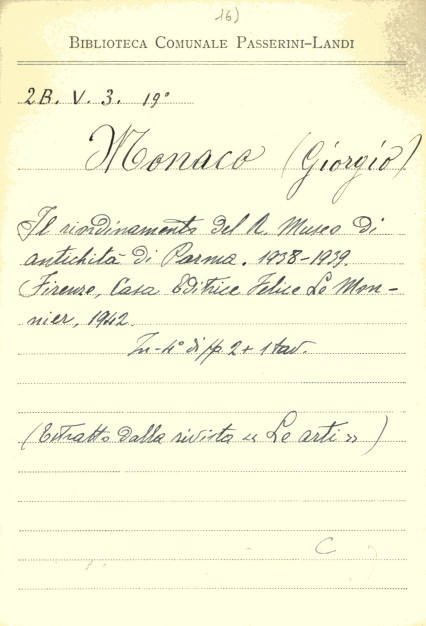 16)
BIBLIOTECA COMUNALE PASSERINI-LANDI
2B. V. 3. 19°
Monaco (Giorgio)
Il riordinamento del R. Museo di
antichità di Parma. 1938-1939.
Firenze, Casa Editrice Felice Le Mon-
nier, 1942.
In-4° di pp. 2 + 1 tav.
(Estratto dalla rivista « Le arti » )
C